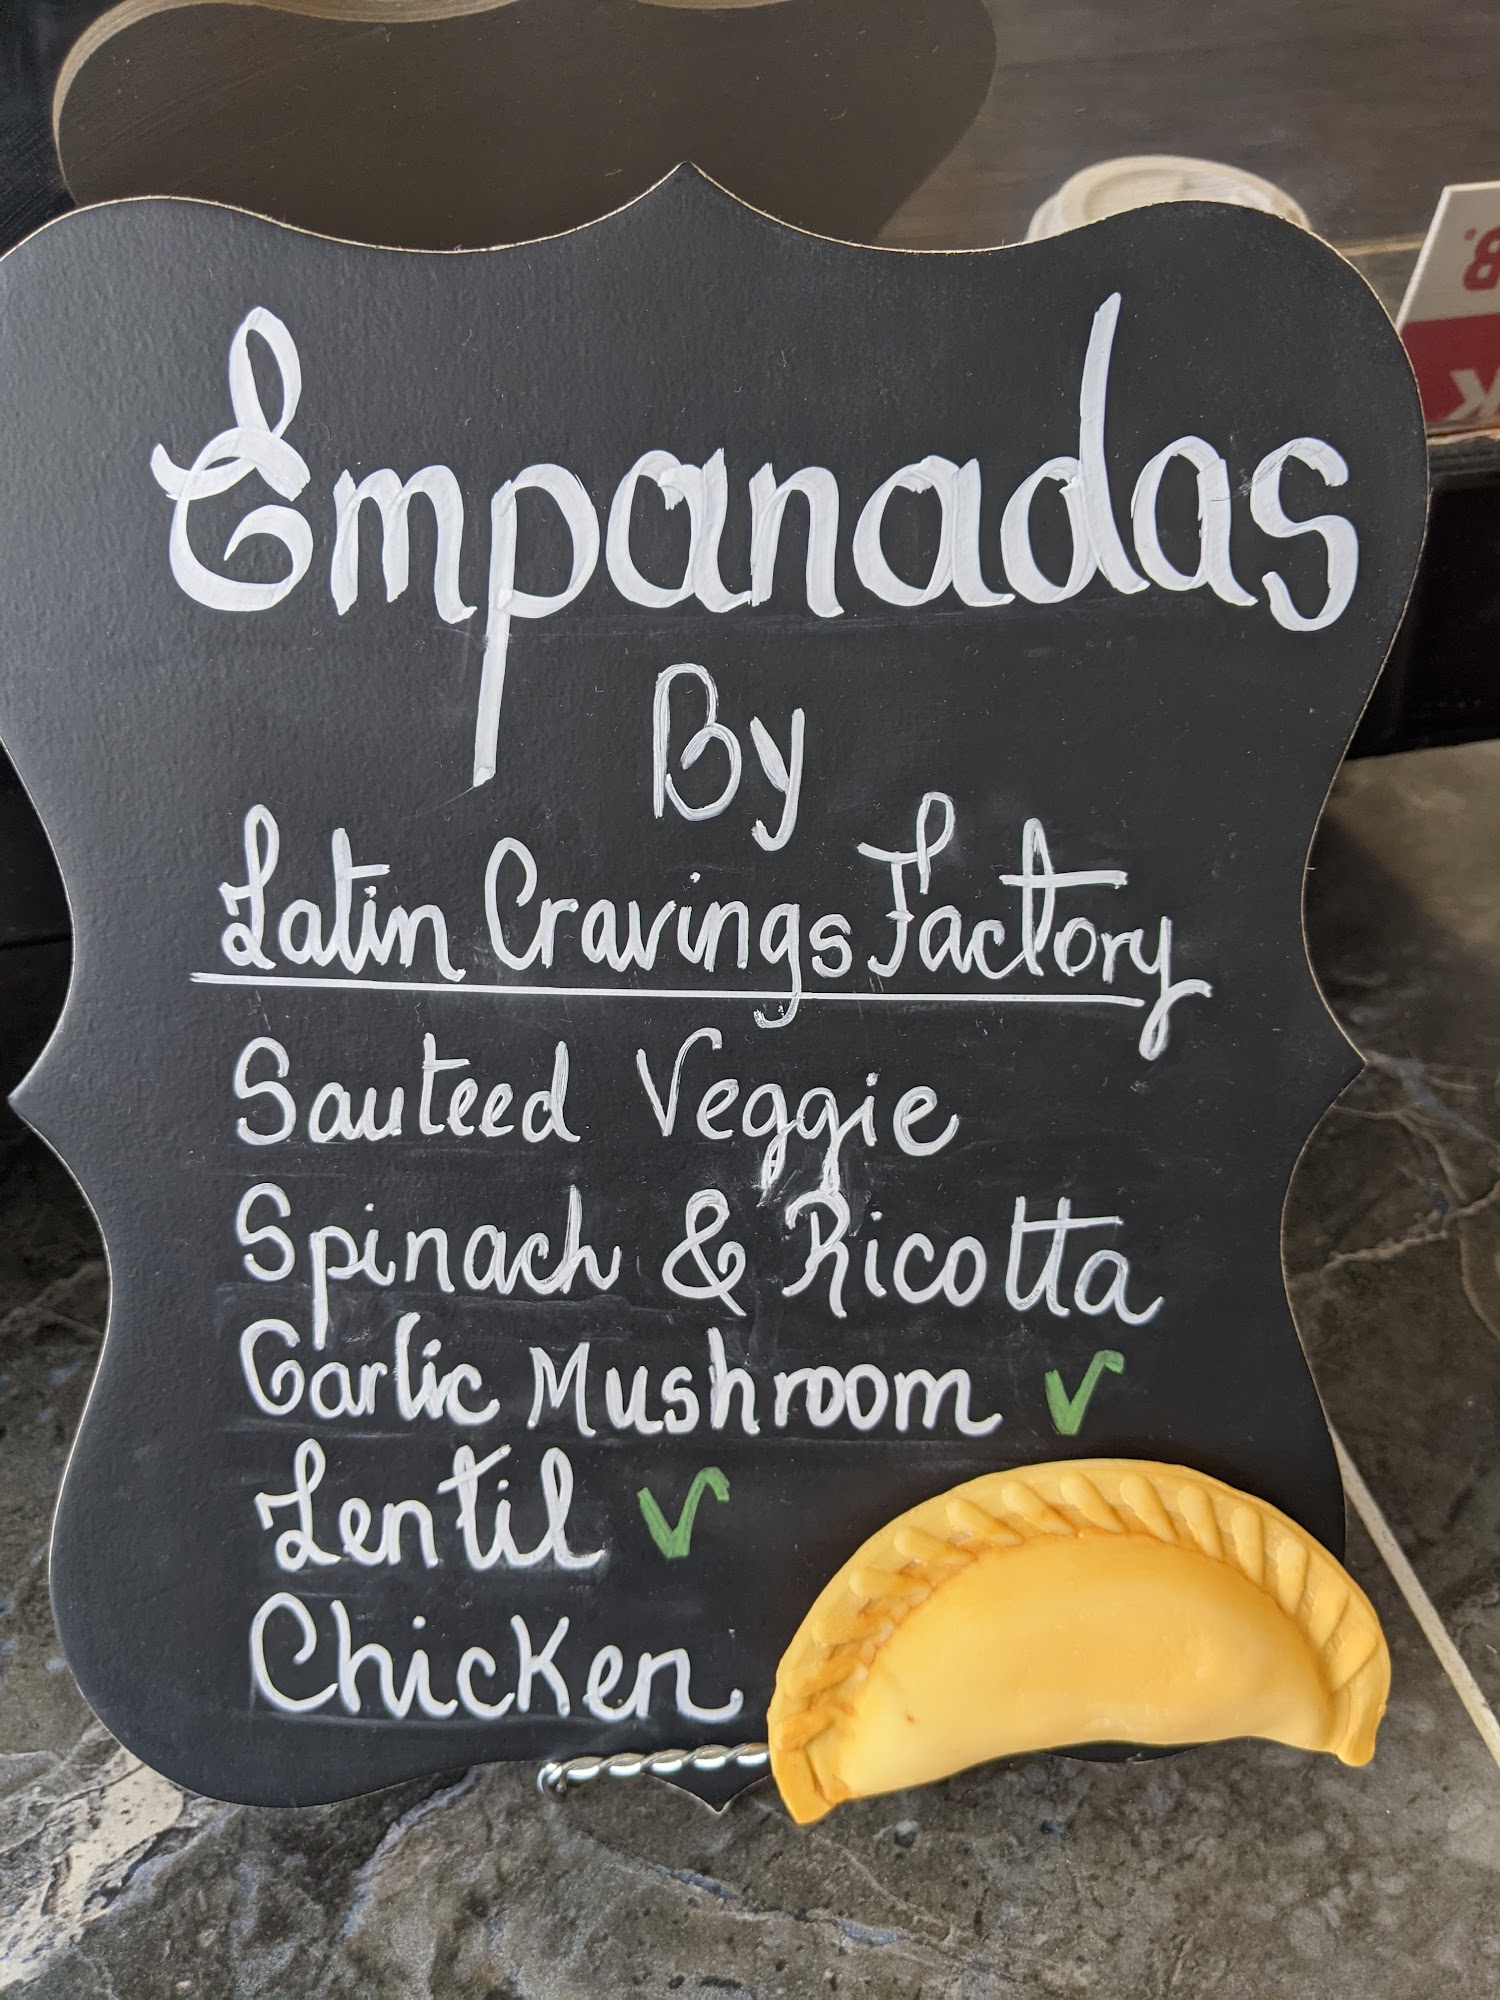 Empanadas
By
Latin Cravings Factory
Sauteed Veggie
Spinach & Ricotta
Garlic Mushroom ✓
Lentil ✓
Chicken